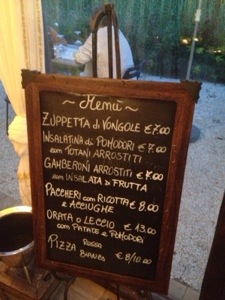 ~ Menù ~
ZUPPETTA di VONGOLE € 7.00
INSALATINA di POMODORI € 7.00
con TOTANI ARROSTITI
GAMBERONI ARROSTITI
con INSALATA di FRUTTA
PACCHERI con RICOTTA € 8.00
e ACCIUGHE
ORATA o LECCIO € 13.00
con PATATE e POMODORI
PIZZA ROSSA
BIANCA € 8/10.00